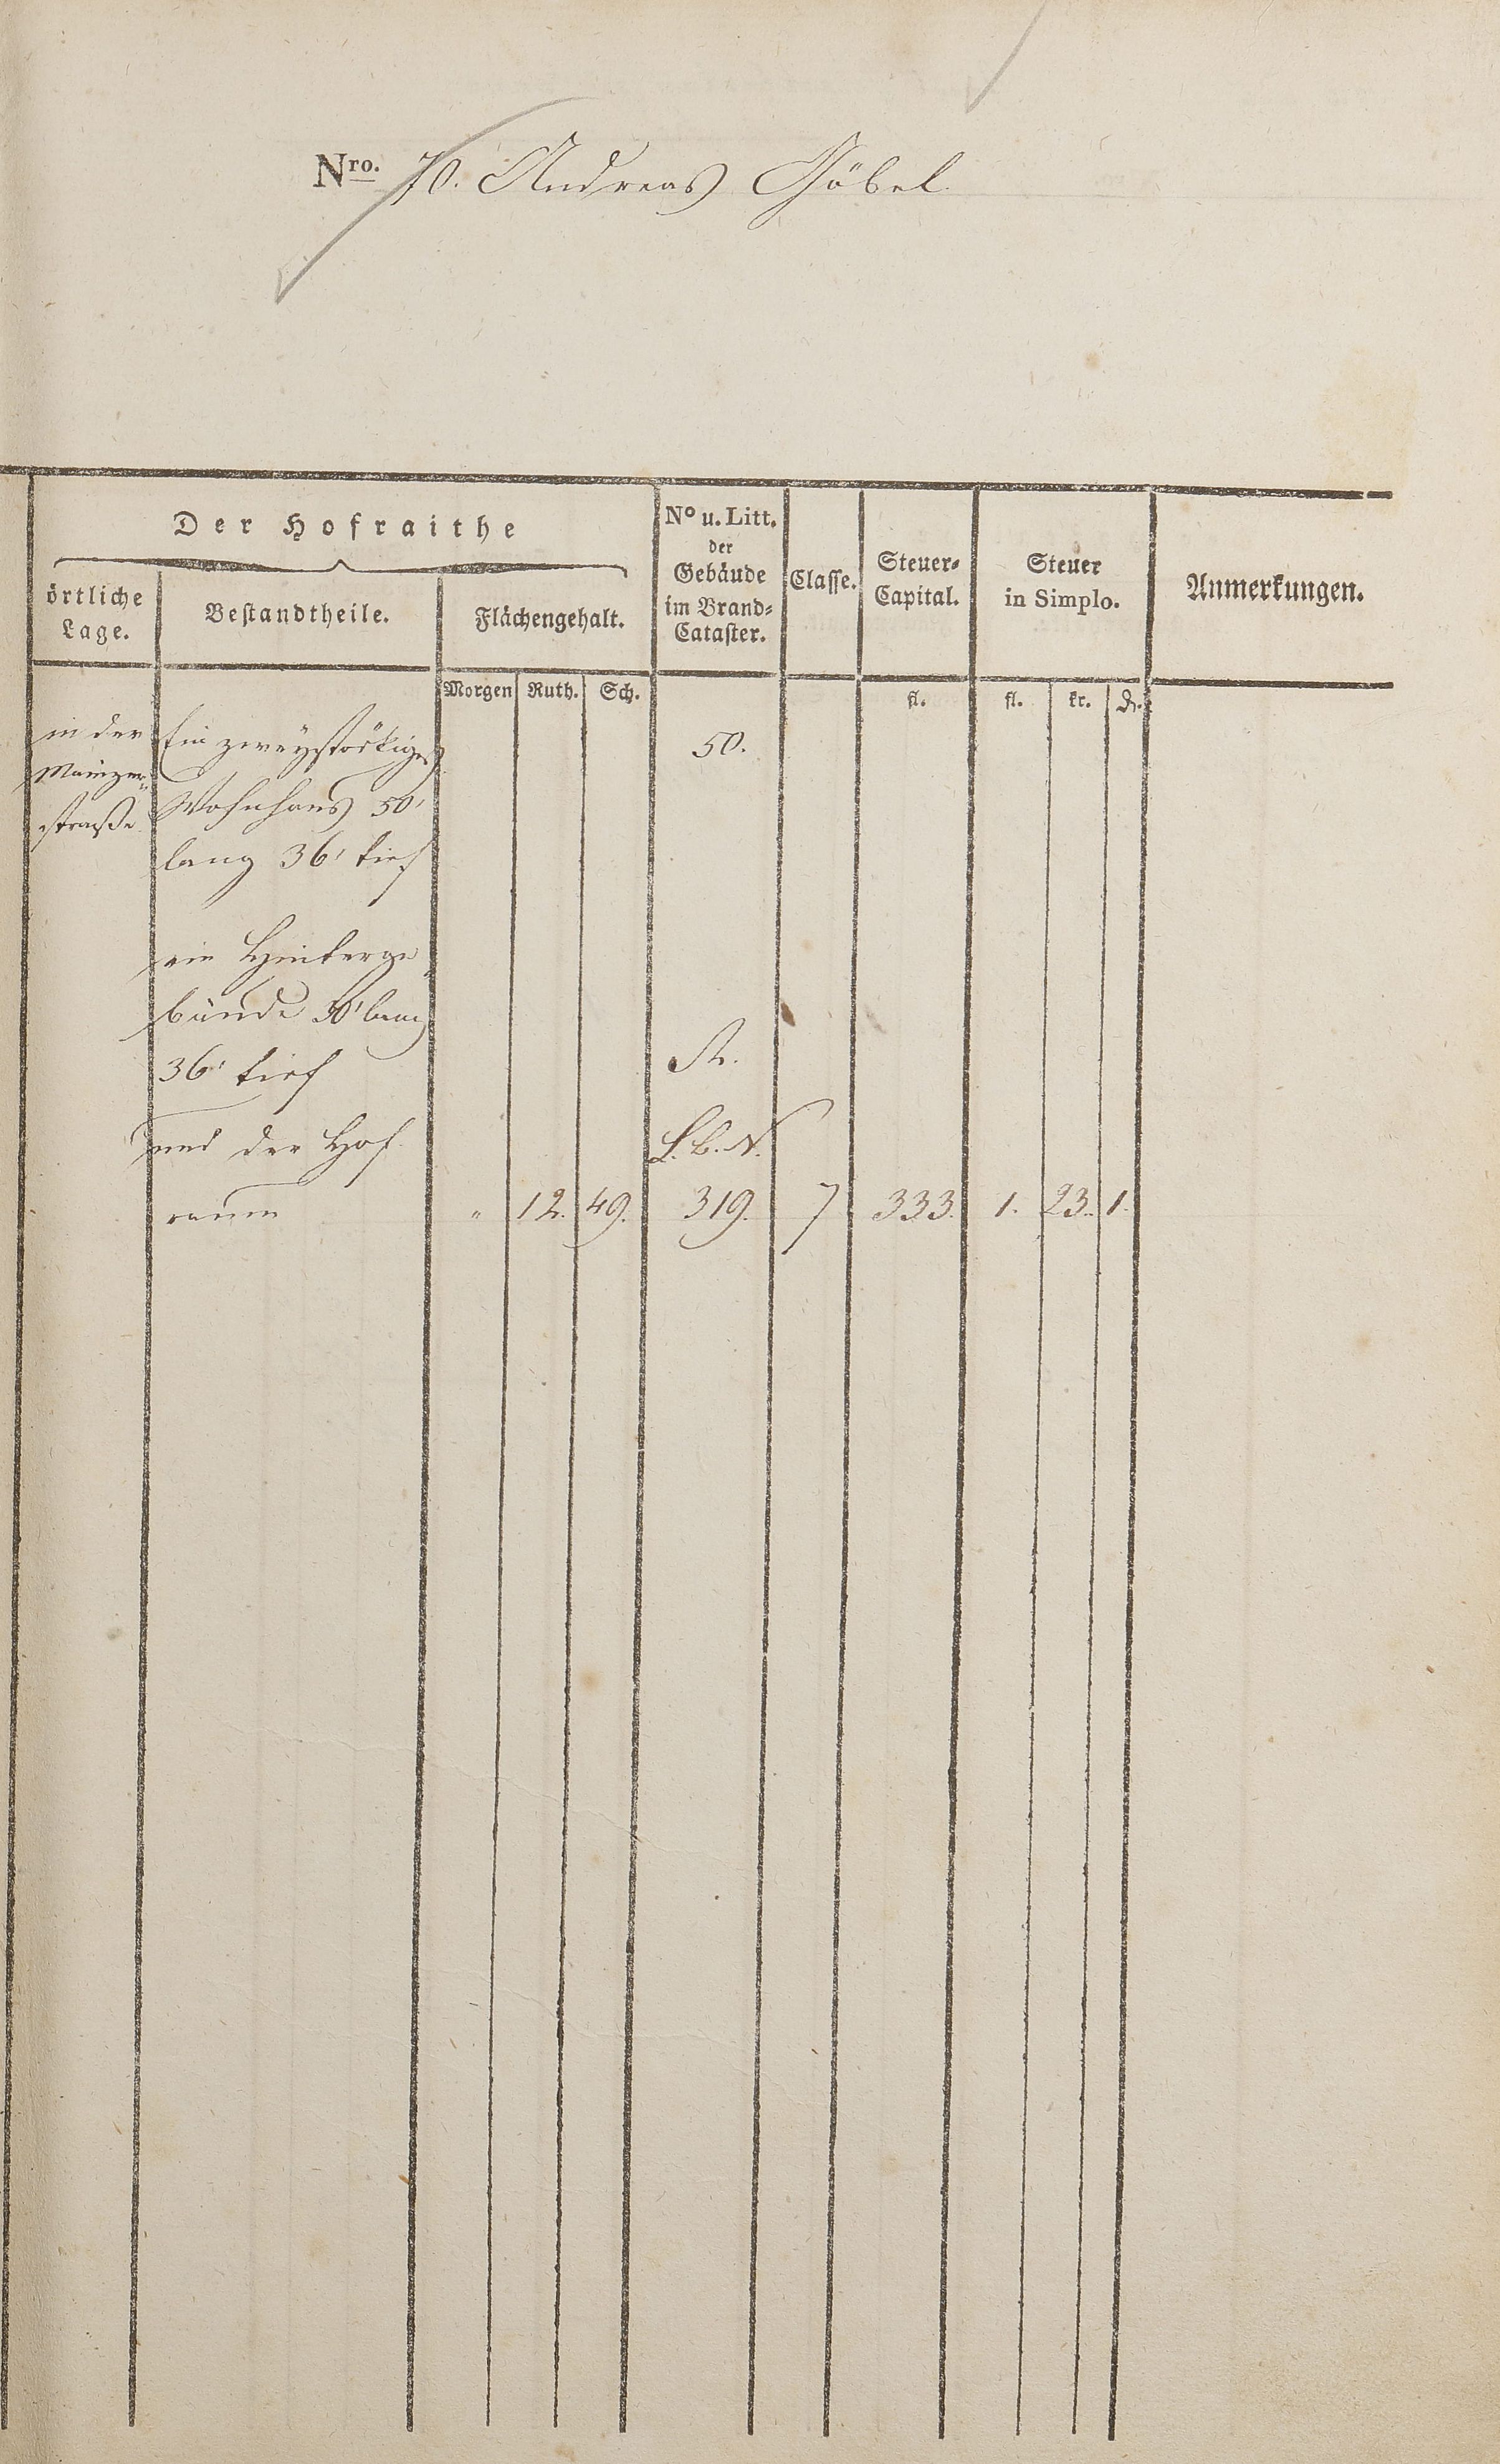 Nro. 70. Andreas Göbel.
Der Hofraithe
örtliche Lage.
Bestandtheile.
Flächengehalt.
No u. Litt. der Gebäude im Brand-Cataster.
Classe.
Steuer-Capital.
Steuer in Simplo.
Anmerkungen.
Morgen Ruth. Sch. fl. fl. kr. d.
in der Ein zweystöckiges 50.
Mainzer-
straße Wohnhaus 50'
lang 36' tief
ein Hinterge-
bäude 30' lang
36' tief A.
und der Hof- L. B. N.
raum " 12. 49. 319. 7 333. 1. 23. 1.